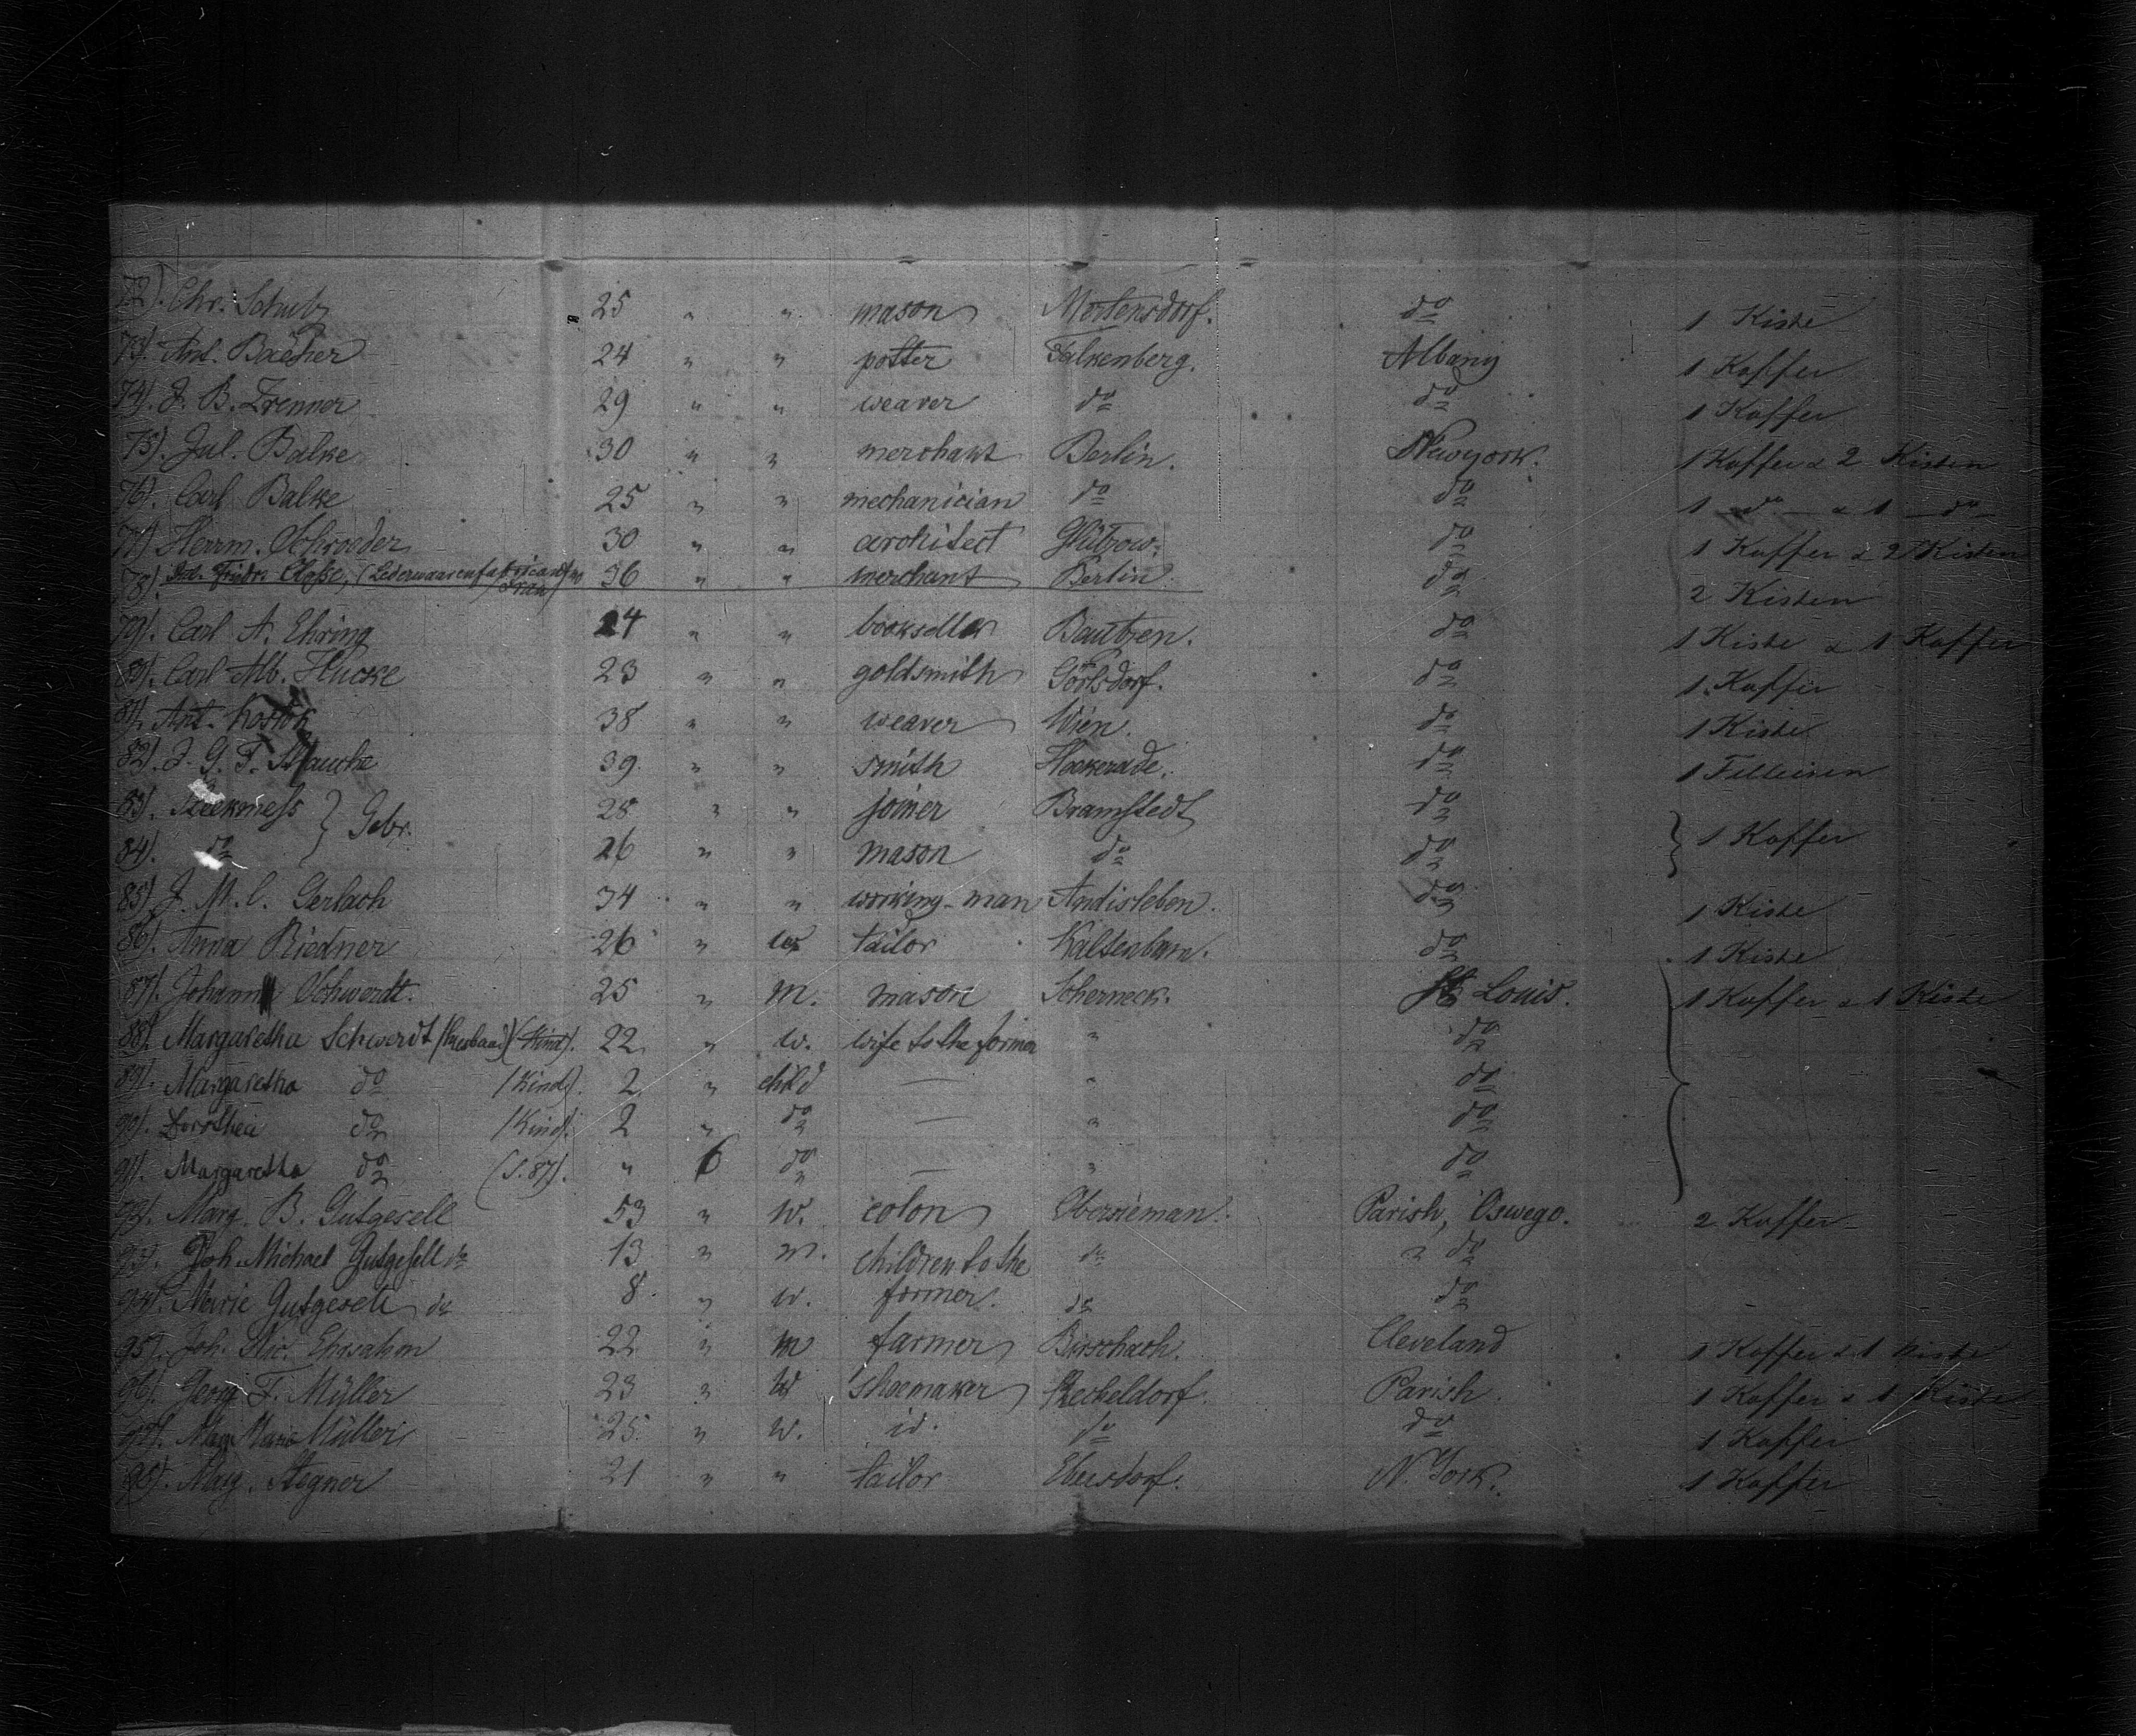 72). Chr. Schulz 25 " " mason Mertensdorf. do 1 Kiste
73). Ant. Baecher 24 " " potter Falkenberg. Albany 1 Koffer
74). J. B. Zrenner 29 " " weaver do do 1 Koffer
75). Jul. Balke 30 " " merchant Berlin. Newyork. 1 Koffer & 2 Kisten
76). Carl Balke 25 " " mechanician do do 1 do & 1 do
77). Herrm. Schroeder 30 " " architect Gützow. do 1 Koffer & 2 Kisten
78). Friedr. 36 " " merchant Berlin. do 2 Kisten
79). Carl A. Ehring 24 " " bookseller Bautzen. do 1 Kiste & 1 Koffer
80). Carl Alb. Hucke 23 " " goldsmith Görlsdorf. do 1 Koffer
81). Ant. Kostok 38 " " weaver Wien. do 1 Kiste
82). J. G. F. 39 " " smith Hockerode. do 1 Felleisen
83). } Gebr. 28 " " joiner Bramstedt do } 1 Koffer
84). do 26 " " mason do do
85). J. M. C. Gerlach 34 " " working-man Andisleben. do 1 Kiste
86). Anna Riedner 26 " w. tailor Kaltenborn. do 1 Kiste
87). Johann Schwerdt. 25 " m. mason Scherneck. St. Louis. 1 Koffer & 1 Kiste
88). Margaretha Schwerdt (Husband) (Kind). 22 " w. wife to the former " do
89). Margaretha do (Kind). 2 " child — " do
90). Dorothea do (Kind). 2 " do — " do
91). Margaretha do (S. 87). " 6 do — " do
92). Marg. B. Gutgesell 53 " w. colon Parish, Oswego. 2 Koffer
93). Joh. Michael Gutgesell do 13 " m. children to the do " do
94). Marie Gutgesell do 8. " w. former. do do
95). Joh. Nic. 22 " m farmer Birschach. Cleveland 1 Koffer & 1 Kiste
96). Georg F. Müller 23 " W shoemaker Heckeldorf. Parish. 1 Koffer & 1 Kiste
97). Marg Maria Müller 25 " w. id. do do 1 Koffer
98). Marg. Stegner 21 " " tailor Ebersdorf. N. York. 1 Koffer